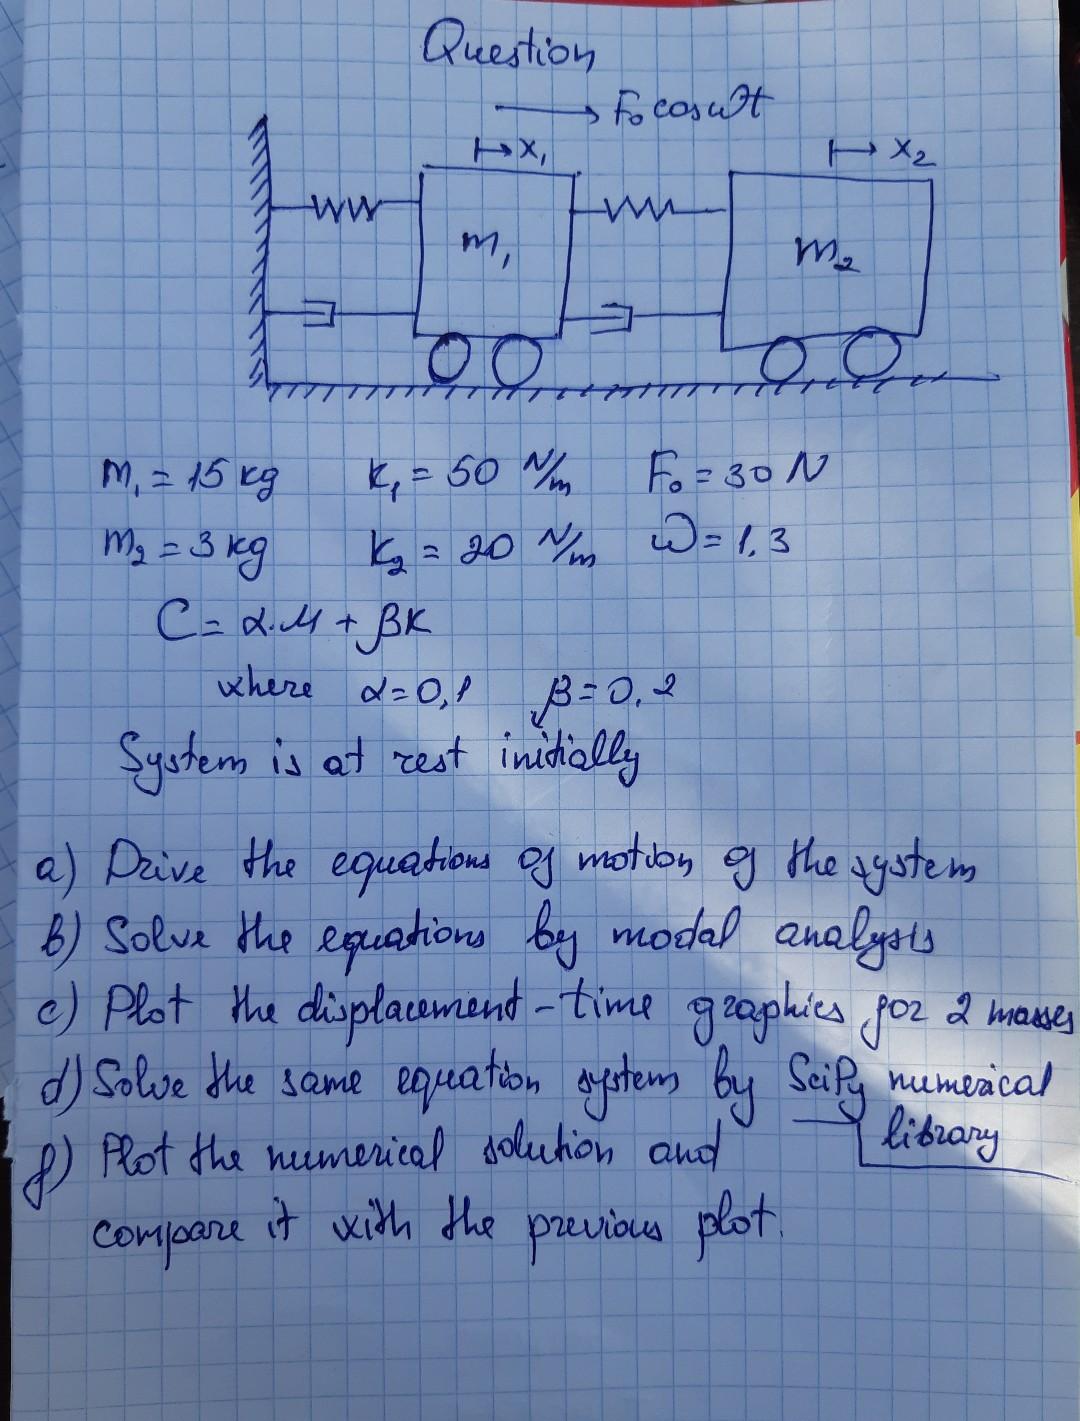 Question
F₀ cos ωt
x₁ x₂
m₁ m₂
m₁ = 15 kg k₁ = 50 N/m F₀ = 30 N
m₂ = 3 kg k₂ = 20 N/m ω = 1,3
C = α.M + βK
where α = 0,1 β = 0,2
System is at rest initially
a) Drive the equations of motion of the system
b) Solve the equations by modal analysis
c) Plot the displacement-time graphics for 2 masses
d) Solve the same equation system by SciPy numerical
library
f) Plot the numerical solution and
compare it with the previous plot.